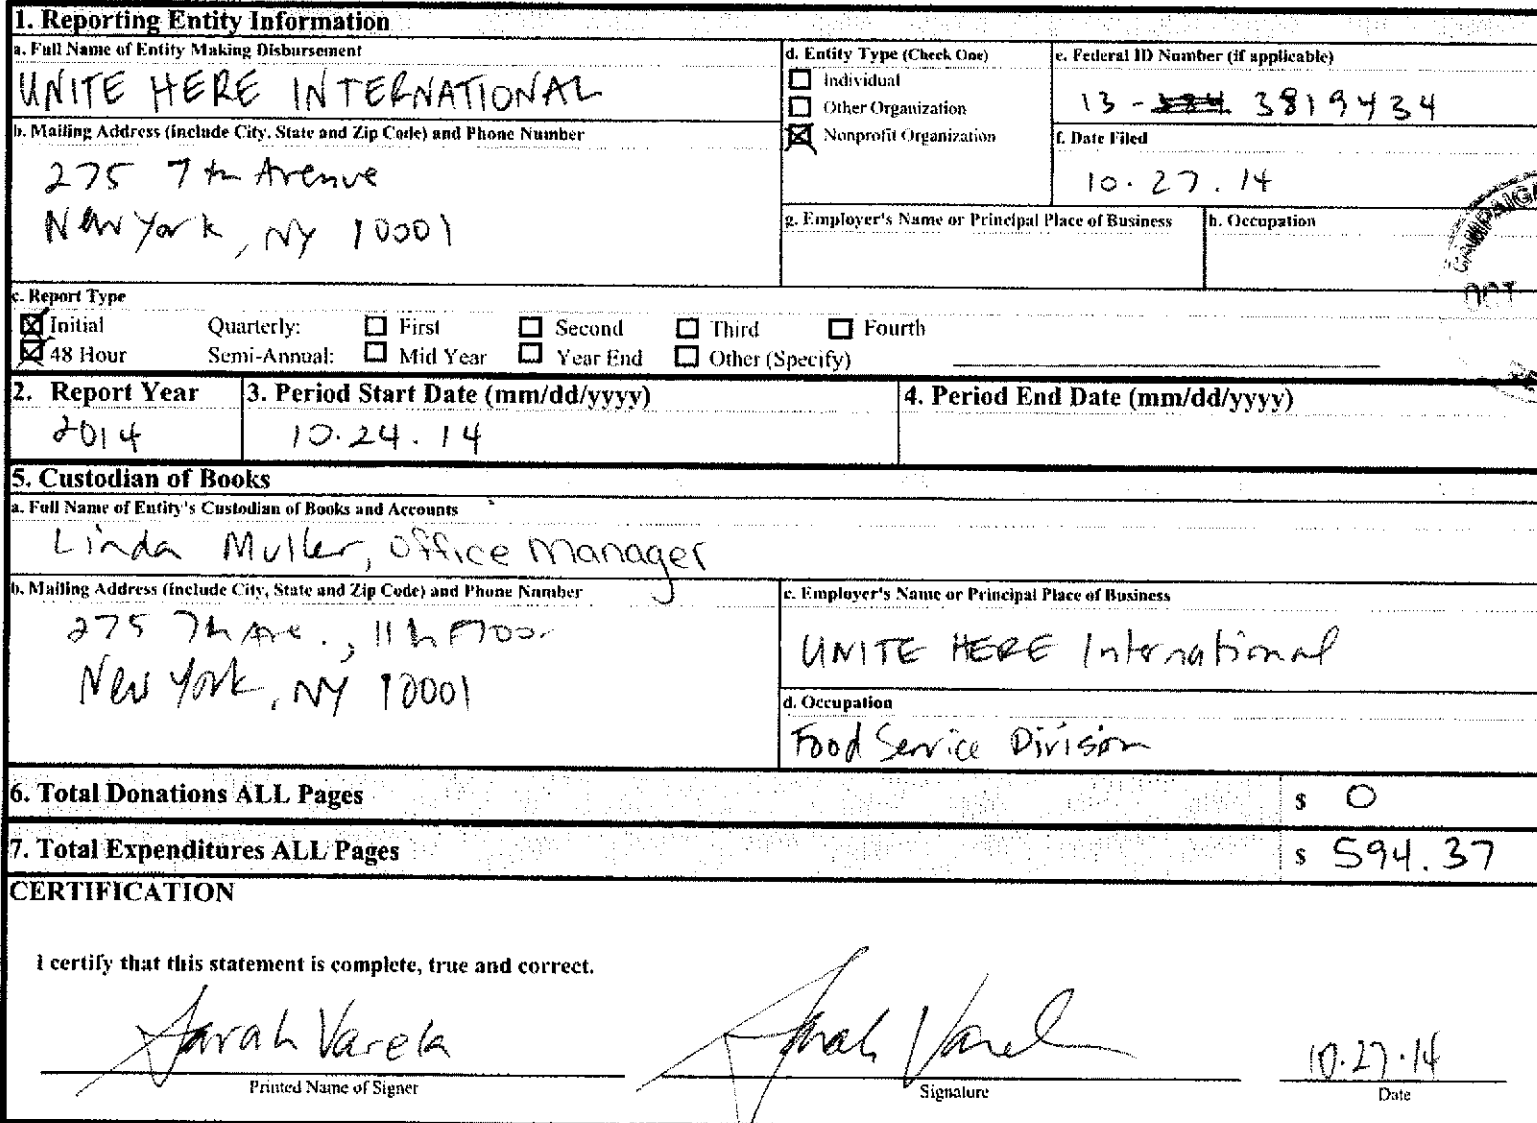 1. Reporting Entity Information
a. Full Name of Entity Making Disbursement
UNITE HERE INTERNATIONAL
b. Mailing Address (include City, State and Zip Code) and Phone Number
275 7th Avenue
New York, NY 10001
d. Entity Type (Check One)
Individual
Other Organization
Nonprofit Organization
e. Federal ID Number (if applicable)
13- 3819434
f. Date Filed
10.27.14
g. Employer's Name or Principal Place of Business
h. Occupation
CAMPAIGN
c. Report Type
Initial Quarterly: First Second Third Fourth
48 Hour Semi-Annual: Mid Year Year End Other (Specify)
2. Report Year
2014
3. Period Start Date (mm/dd/yyyy)
10.24.14
4. Period End Date (mm/dd/yyyy)
5. Custodian of Books
a. Full Name of Entity's Custodian of Books and Accounts
Linda Muller, Office Manager
b. Mailing Address (include City, State and Zip Code) and Phone Number
275 7th Ave., 11th Floor
New York, NY 10001
c. Employer's Name or Principal Place of Business
UNITE HERE International
d. Occupation
Food Service Division
6. Total Donations ALL Pages $ 0
7. Total Expenditures ALL Pages $ 594.37
CERTIFICATION
I certify that this statement is complete, true and correct.
Sarah Varela
Printed Name of Signer
Sarah Varela
Signature
10.27.14
Date